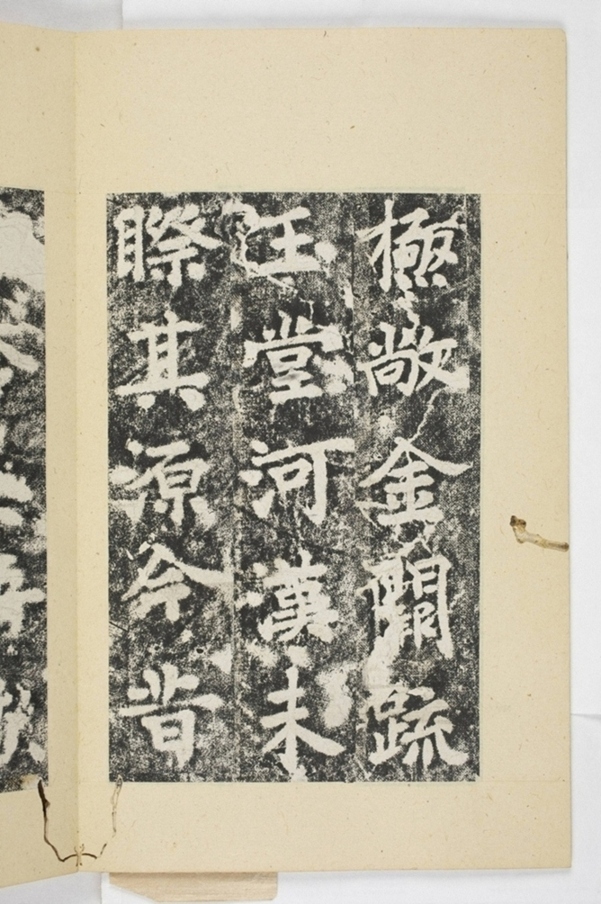 極敞金闕疏
玉堂河漢未
際其源今昔